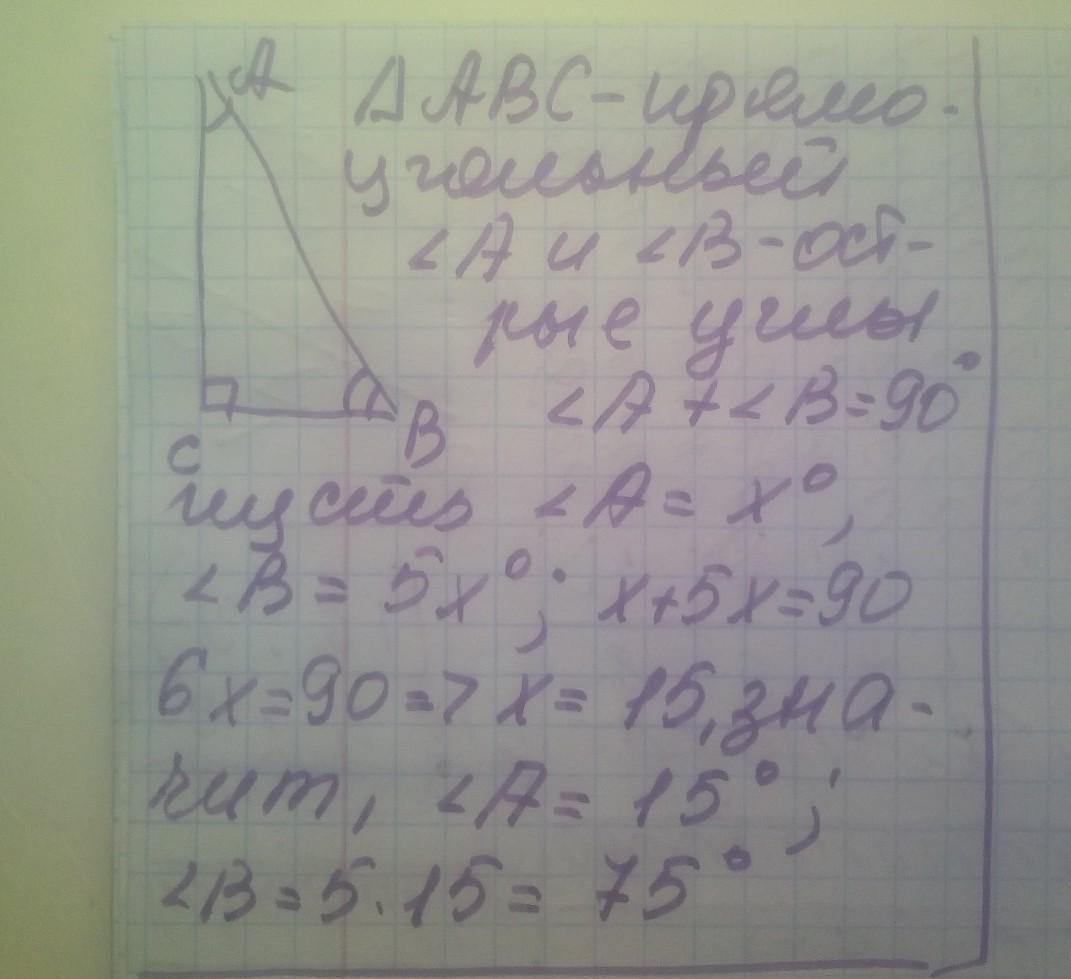 A
△ABC - прямо-
угольный
∠A и ∠B - ост-
рые углы
∠A + ∠B = 90°
C
B
пусть ∠A = x°,
∠B = 5x°; x+5x=90
6x=90 => x= 15, зна-
чит, ∠A= 15°;
∠B = 5·15 = 75°